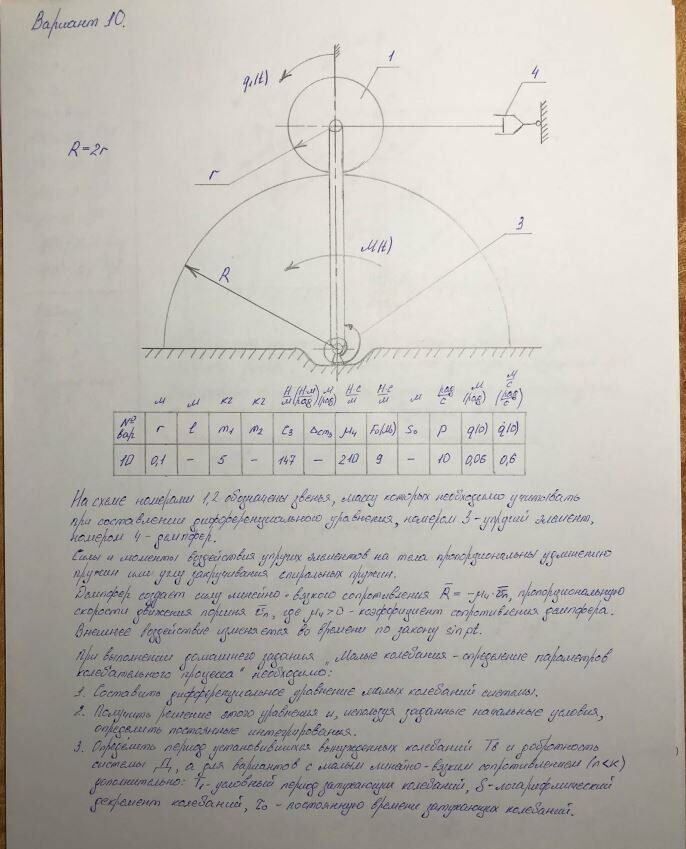 Вариант 10.
1
q₁(t)
4
R = 2r
r
3
M(t)
R
м м кг кг Н/м (Н·м/рад) м (рад) Н·с/м Н·с/м м рад/с м (рад) м/с (рад/с)
№ вар r l m₁ m₂ c₃ Δcт₃ μ₄ F₀(M₀) S₀ p q(0) q̇(0)
10 0,1 – 5 – 147 – 210 9 – 10 0,06 0,6
На схеме номерами 1,2 обозначены звенья, массу которых необходимо учитывать
при составлении дифференциального уравнения, номером 3 - упругий элемент,
номером 4 - демпфер.
Силы и моменты воздействия упругих элементов на тела пропорциональны удлинению
пружин или углу закручивания спиральных пружин.
Демпфер создает силу линейно-вязкого сопротивления R̄ = -μ₄·v̄п, пропорциональную
скорости движения поршня v̄п, где μ₄ > 0 - коэффициент сопротивления демпфера.
Внешнее воздействие изменяется во времени по закону sin pt.
При выполнении домашнего задания „Малые колебания - определение параметров
колебательного процесса" необходимо:
1. Составить дифференциальное уравнение малых колебаний системы.
2. Получить решение этого уравнения и, используя заданные начальные условия,
определить постоянные интегрирования.
3. Определить период установившихся вынужденных колебаний Тв и добротность
системы Д, а для вариантов с малым линейно-вязким сопротивлением (n<k)
дополнительно: Т₁ - условный период затухающих колебаний, δ - логарифмический
декремент колебаний, τ₀ - постоянную времени затухающих колебаний.